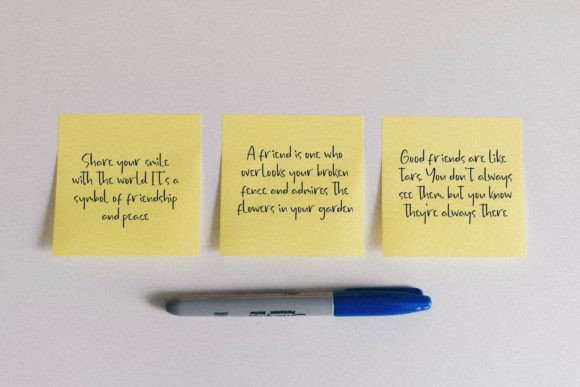 Share your smile
with the world It's a
symbol of friendship
and peace
A friend is one who
overlooks your broken
fence and admires the
flowers in your garden
Good friends are like
tars. You don't always
see them, but you know
they're always there
Permanent Marker